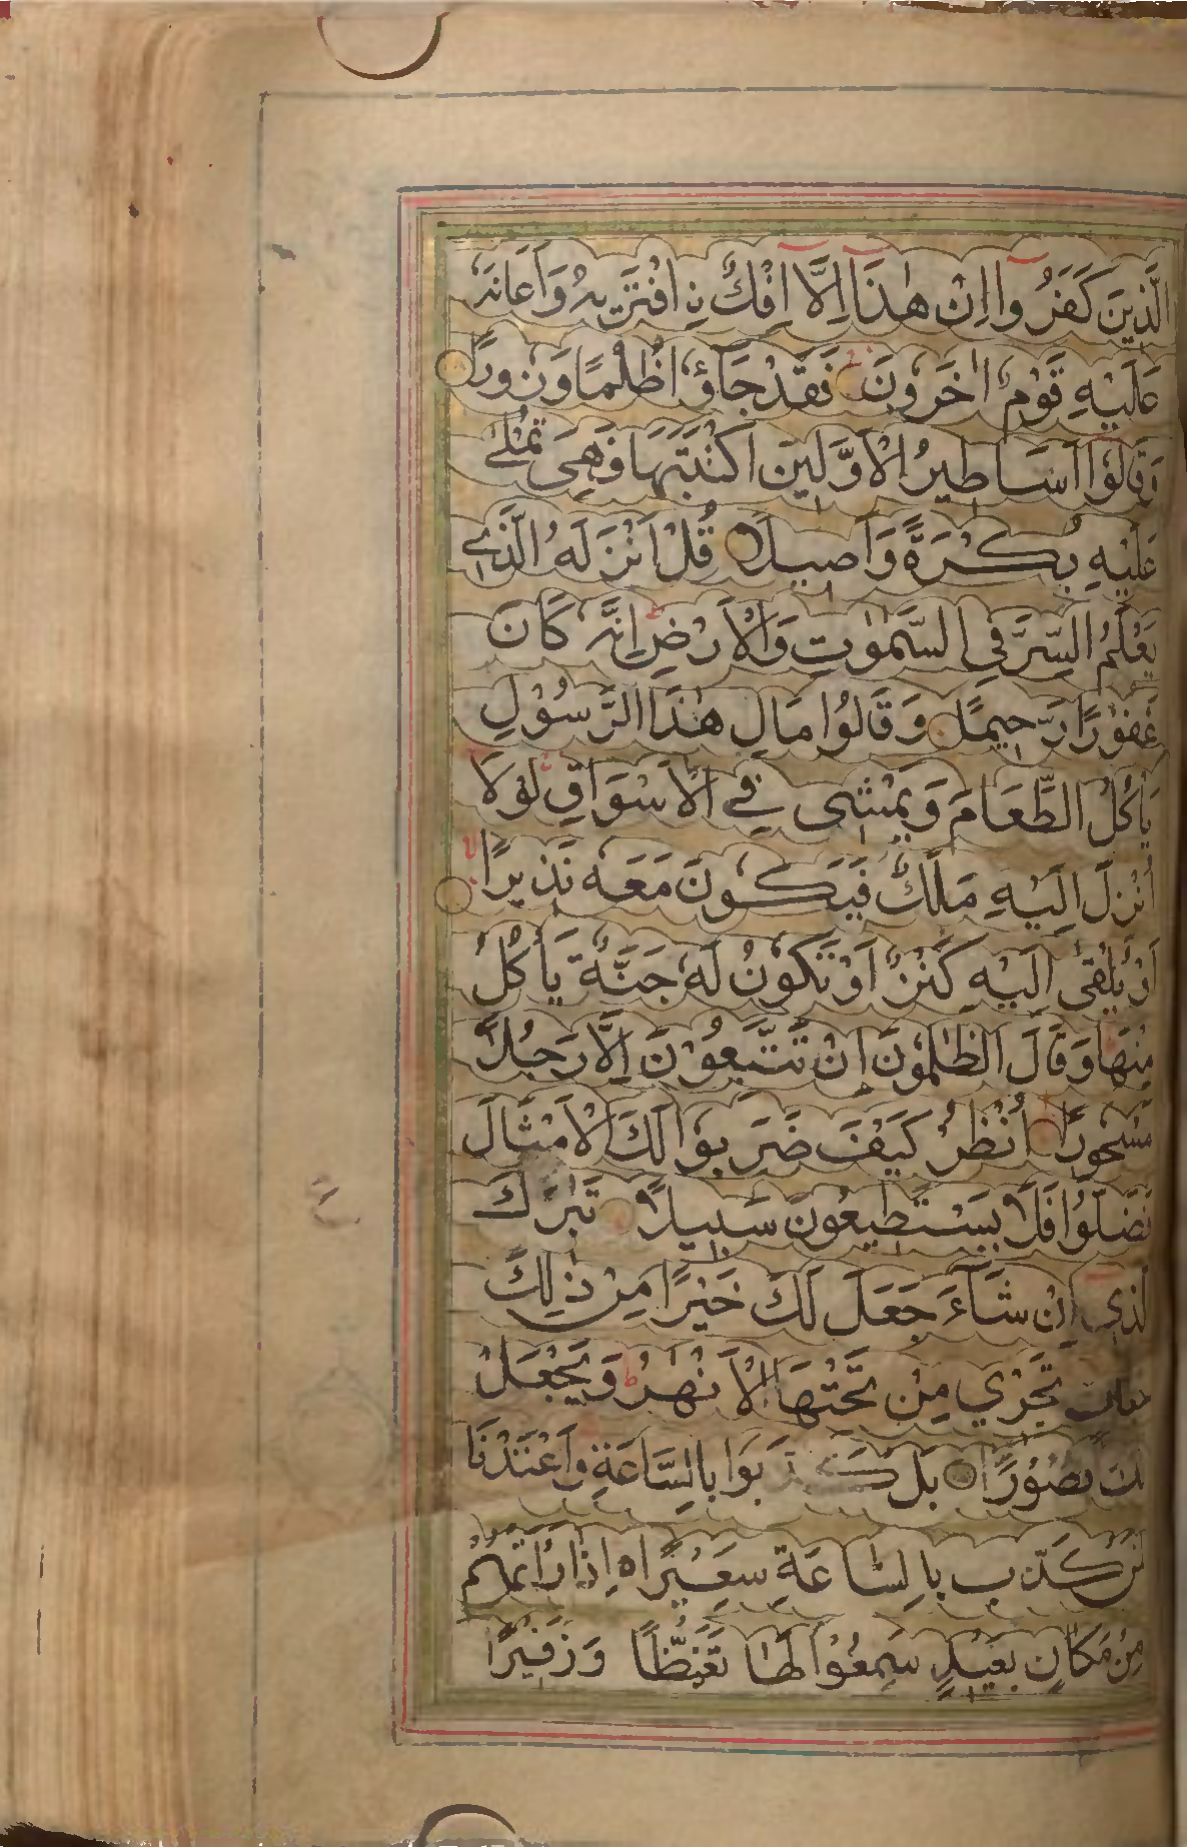 الَّذِينَ كَفَرُوا اِنْ هٰذَا اِلَّا اِفْكُ نِ افْتَرٰىهُ وَاَعَانَهٗ
عَلَيْهِ قَوْمٌ اٰخَرُونَ فَقَدْ جَاؤُ اظُلْمًا وَزُورًا
وَقَالُوا اَسَاطِيرُ الْاَوَّلِينَ اكْتَتَبَهَا فَهِىَ تُمْلٰى
عَلَيْهِ بُكْرَةً وَاَصِيلًا قُلْ اَنْزَلَهُ الَّذِى
يَعْلَمُ السِّرَّ فِى السَّمٰوٰتِ وَالْاَرْضِ اِنَّهٗ كَانَ
غَفُوْرًا رَّحِيمًا وَقَالُوا مَالِ هٰذَا الرَّسُوْلِ
يَاْكُلُ الطَّعَامَ وَيَمْشِى فِى الْاَسْوَاقِ لَوْلَا
اُنْزِلَ اِلَيْهِ مَلَكٌ فَيَكُونَ مَعَهٗ نَذِيرًا
اَوْ يُلْقٰى اِلَيْهِ كَنْزٌ اَوْ تَكُونُ لَهٗ جَنَّةٌ يَاْكُلُ
مِنْهَا وَقَالَ الظّٰلِمُونَ اِنْ تَتَّبِعُوْنَ اِلَّا رَجُلًا
مَسْحُورًا اُنْظُرْ كَيْفَ ضَرَبُوا لَكَ الْاَمْثَالَ
فَضَلُّوا فَلَا يَسْتَطِيعُونَ سَبِيلًا تَبٰرَكَ
الَّذِى اِنْ شَآءَ جَعَلَ لَكَ خَيْرًا مِنْ ذٰلِكَ
تَجْرِي مِنْ تَحْتِهَا الْاَنْهٰرُ وَيَجْعَلْ
لَكَ قُصُوْرًا بَلْ كَذَّبُوا بِالسَّاعَةِ وَاَعْتَدْنَا
لِمَنْ كَذَّبَ بِالسَّاعَةِ سَعِيْرًا اِذَا رَاَتْهُمْ
مِنْ مَكَانٍ بَعِيْدٍ سَمِعُوْا لَهَا تَغَيُّظًا وَزَفِيْرًا